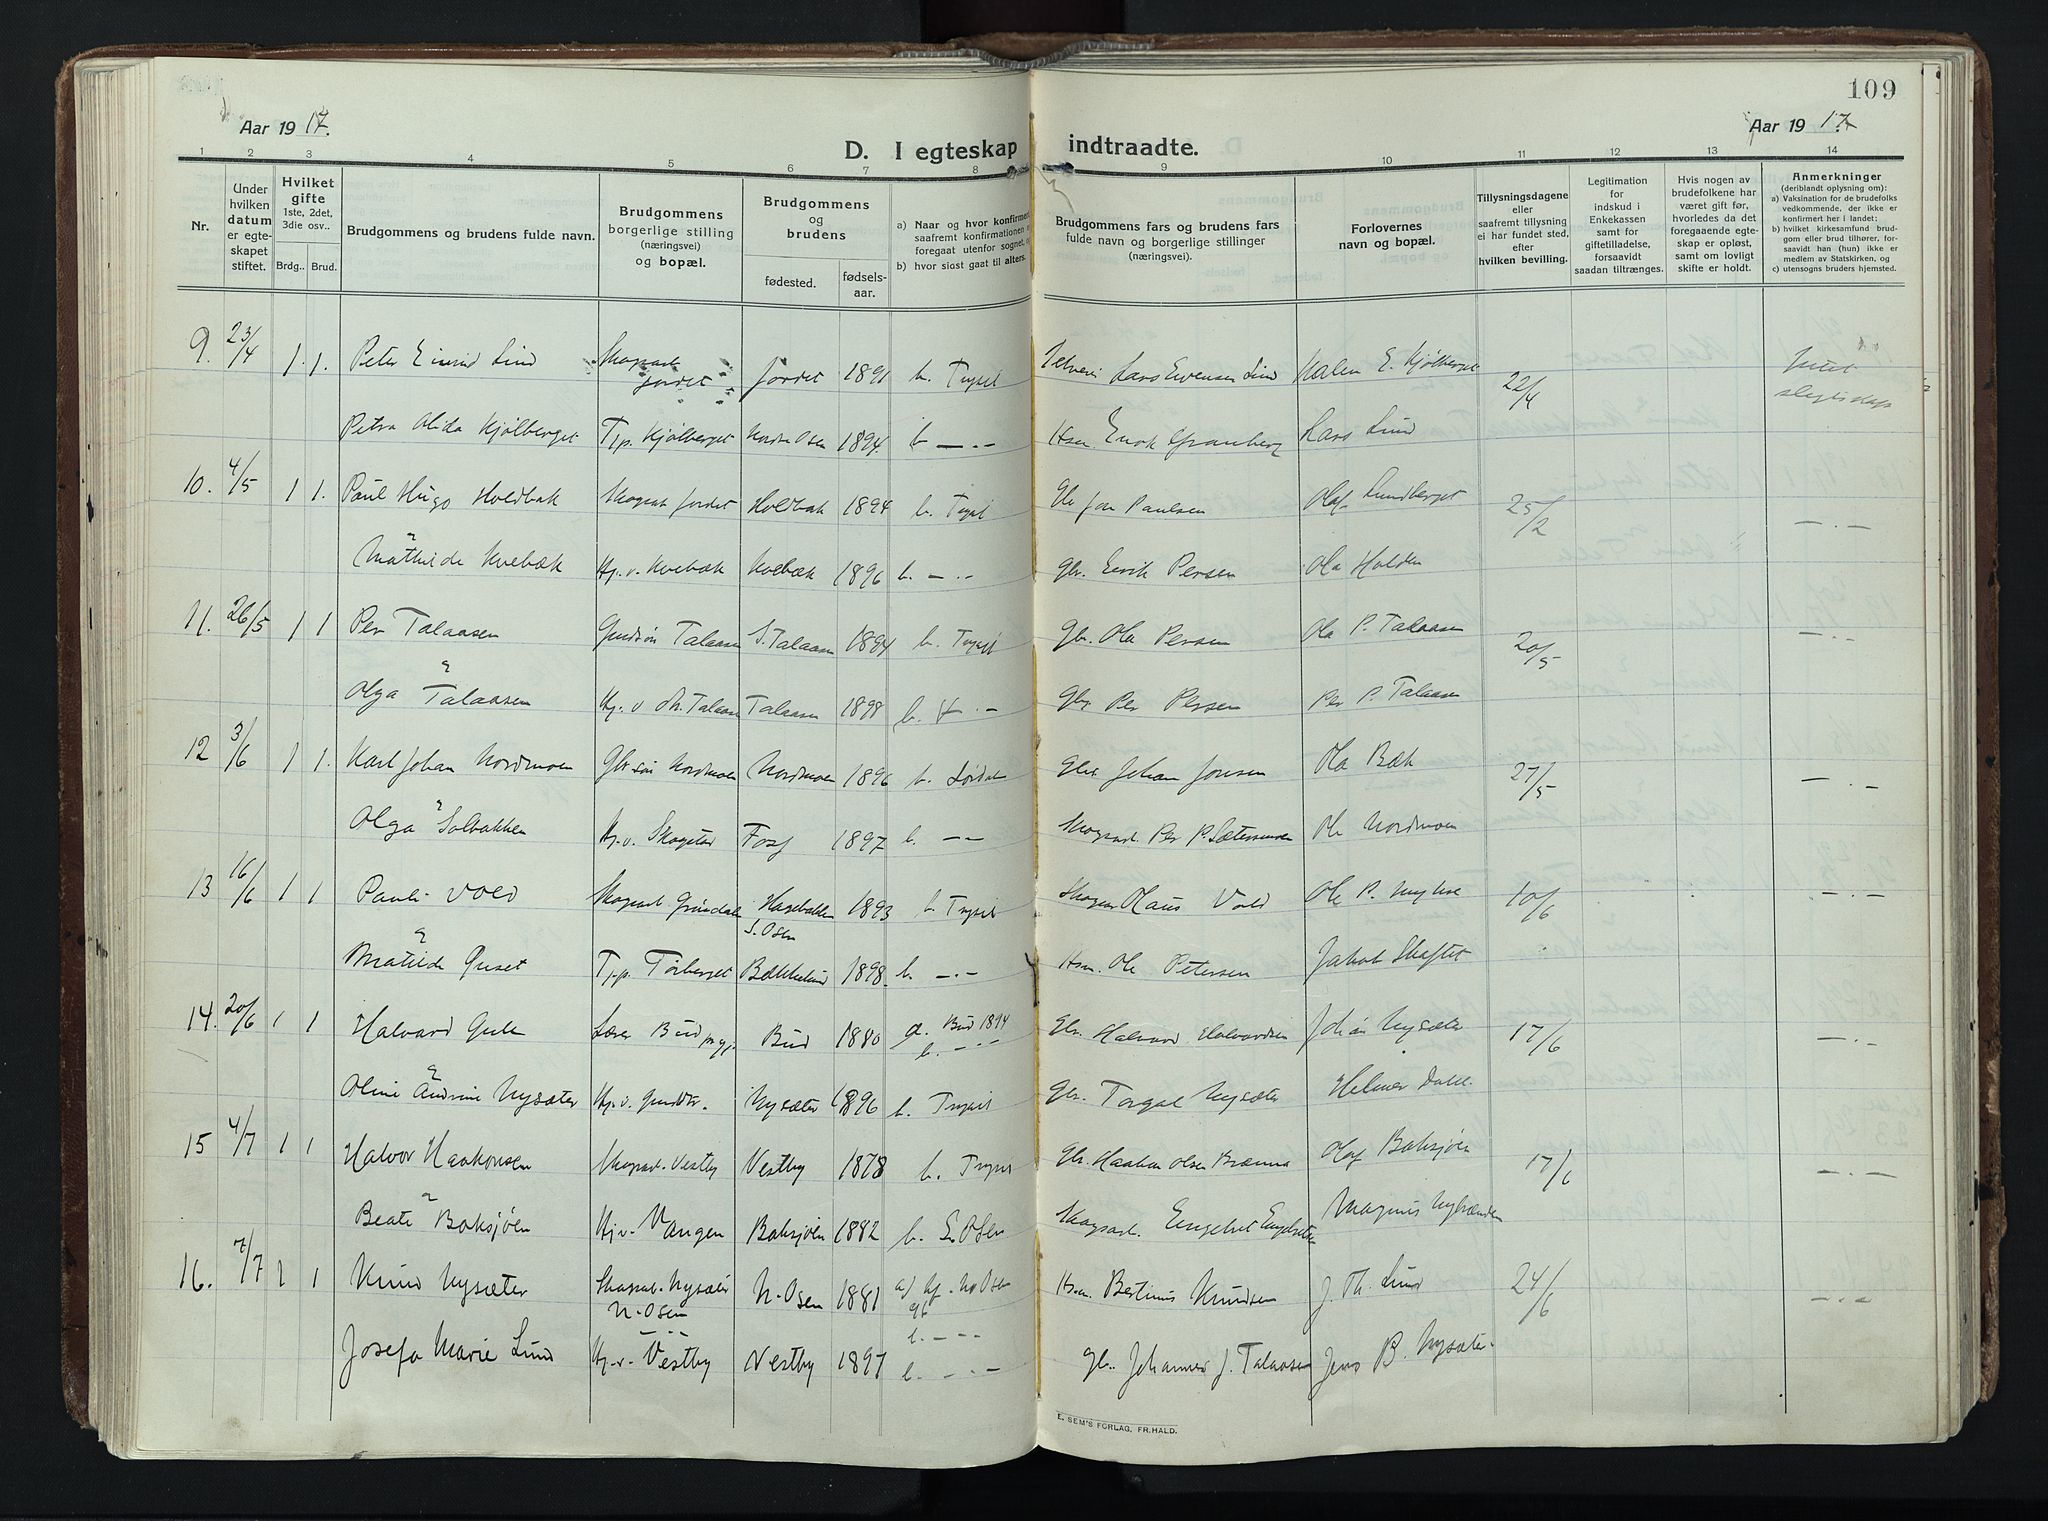 109
Aar 1917.
Aar 1917
D. I egteskap indtraadte.
1 2 3 4 5 6 7 8 9 10 11 12 13 14
Nr.
Under hvilken datum er egte-skapet stiftet.
Hvilket gifte 1ste, 2det, 3die osv..
Brdg.. Brud.
Brudgommens og brudens fulde navn.
Brudgommens borgerlige stilling (næringsvei) og bopæl.
Brudgommens og brudens
fødested.
fødsels-aar.
a) Naar og hvor konfirmert
saafremt konfirmationen
foregaat utenfor sognet,
b) hvor sidst gaat til alters.
Brudgommens fars og brudens fars
fulde navn og borgerlige stillinger
(næringsvei).
Forlovernes
navn og bopæl.
Tillysningsdagene
eller
saafremt tillysning
ei har fundet sted,
efter
hvilken bevilling.
Legitimation
for
indskud i
Enkekassen
samt for
giftetilladelse,
forsaavidt
saadan tiltrænges.
Hvis nogen av
brudefolkene har
været gift før,
hvorledes da det
foregaaende egte-
skap er opløst,
samt om lovligt
skifte er holdt.
Anmerkninger
(deriblandt oplysning om):
a) Vaksination for de brudefolks
vedkommende, der ikke er
konfirmert her i landet;
b) hvilket kirkesamfund brud-
gom eller brud tilhører, for-
saavidt han (hun) ikke er
medlem av Statskirken, og
c) utensogns bruders hjemsted.
9. 23/4 1. 1. Peter Einrid Lind Skogsarb. Jordet Jordet 1891 b. Trysil Lars Evensen Lind Halen E. Kjølberget 22/4 Intet slegtskap
Petra Alida Kjølberget Tj.p. Kjølberget Nordre Osen 1894. b — . — Hsm. Lars Lind
10. 4/5 1 1. Paul Hugo Holdbak Skogsarb. Jordet Holdbak 1894 b. Trysil Gbr Jon Paulsen Olaf Lundberget 25/2 — . —
Mathilde Kvebæk Hj.v. Kvebæk Kvebæk 1896 b. — . — Gbr. Eerik Persen Ola Holden
11. 26/5 1 1 Per Talaasen Gaardsøn Talaasen S. Talaasen 1894 b. Trysil Gbr. Ola Persen Ola P. Talaasen 20/5 — . —
& Olga Talaasen Hj. v Talaasen Talaasen 1898 b. . — Gbr Per Persen Per P. Talaasen
12 3/6 1 1. Karl Johan Nordmoen Gbr søn Nordmoen Nordmoen 1896 b. Lørdalen Gbr Johan Jonsen Ola Bæk 27/5 — . —
& Olga Solbakken Hj.v. Skogstad Foss 1897 b. — — Skogsarb. Per P. Sætermoen Ole Nordmoen
13 16/6 1 1 Pauli Vold Skogsarb. Grøndalen Hagebakken S. Osen 1893 b. Trysil Olaus Vold Ole P. Nyhus 10/6 — . —
& Matilde Galset Tj.p. Torberget Bækkelund 1898. b. — . — Hsm. Ole Petersen Jakob Skaftet
14. 20/6 1 1 Halvard Gule Lærer Bud Bud 1880 a. Bud 1894 b. — . — Gbr. Halvard Halvardsen Johan Nysæter 17/6 — . —
& Oline Andrine Nysæter Hj.v. Nysæter 1896 b. Trysil Gbr. Torgal Nysæter Helmer Dahl.
15 4/7 1 1 Halvor Haakonsen Skogsarb. Vestby Vestby 1878 b. Trysil Gbr. Haakon Olsen Brænna Olaf Baksjøen 17/6 — . —
& Beate Baksjøen Hj.v. Vangen Baksjøen 1882 b. S. Osen Skogsarb. Engebret Engebretsen Magnus Nybrænden
16. 7/7 1 1 Knud Nysæter Skogsarb. Nysæter N. Osen N. Osen 1881 a) N. Osen b. — . — Hsm. Bertinus Knudsen J. Th. Lund 24/6 — . —
Josefa Marie Lund Hj.v. Vestby Vestby 1897 b. — . — Gbr. Johannes J. Talaasen Jens B. Nysæter.
E. SEM'S FORLAG, FR.HALD.